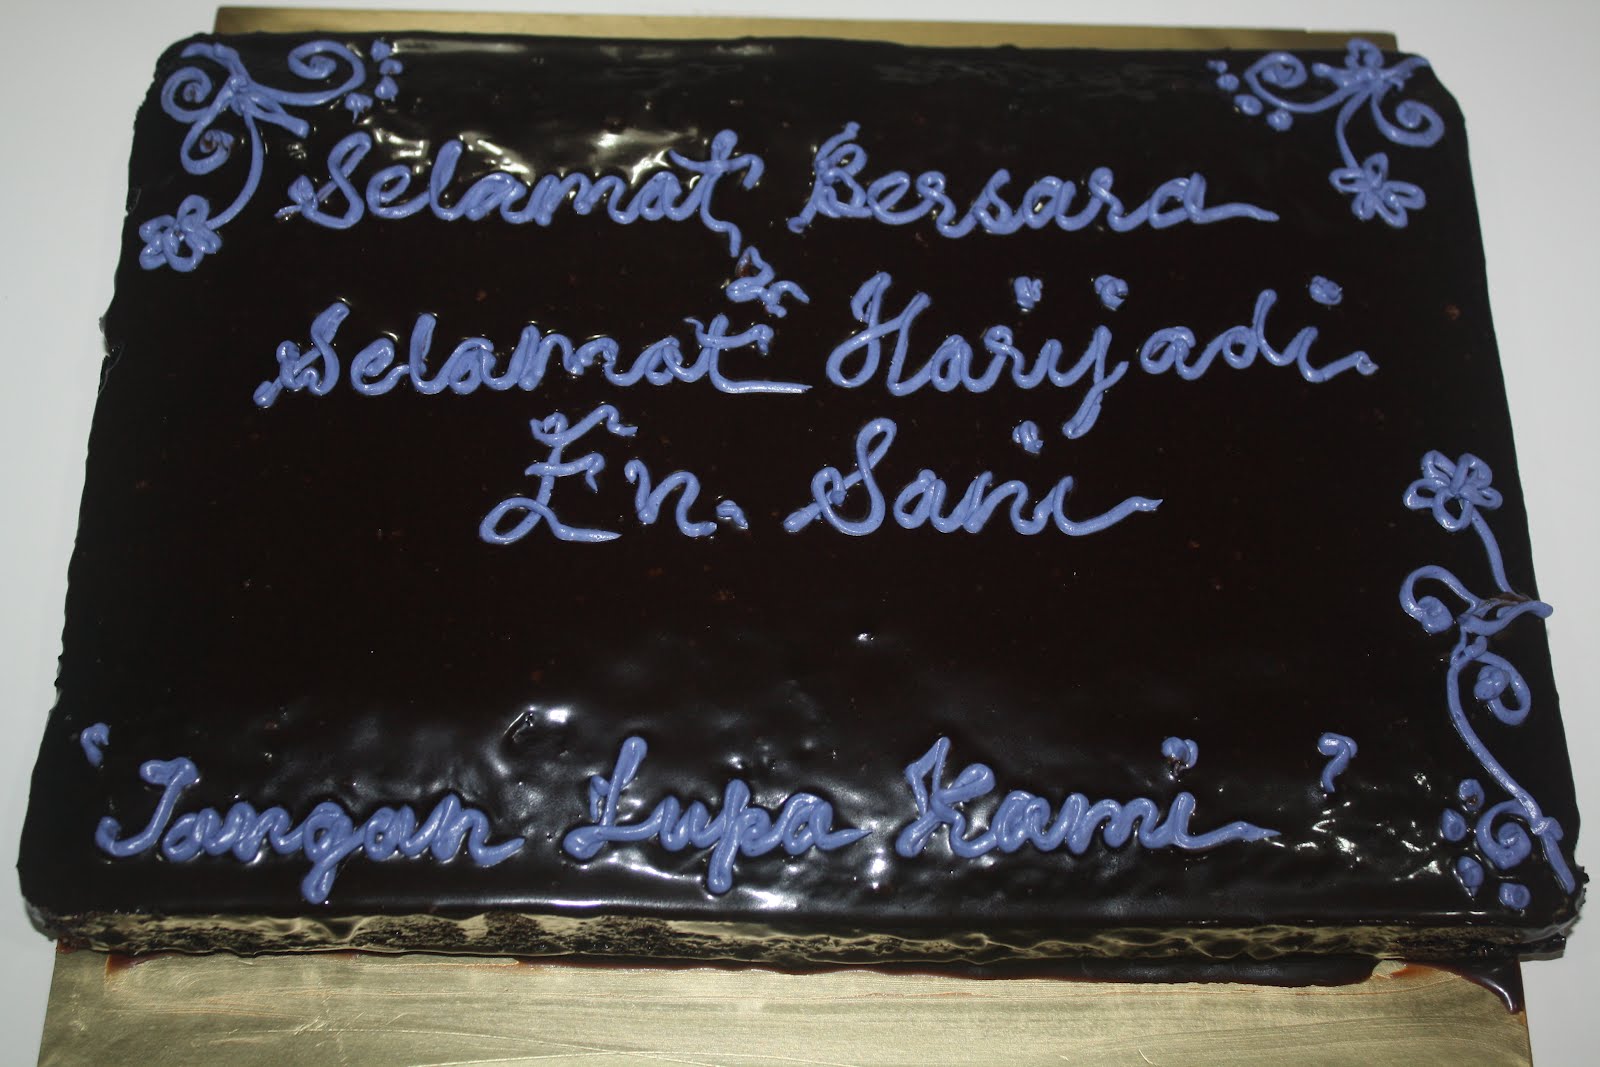 Selamat Bersara
&
Selamat Harijadi
En. Sani
'Jangan Lupa Kami'